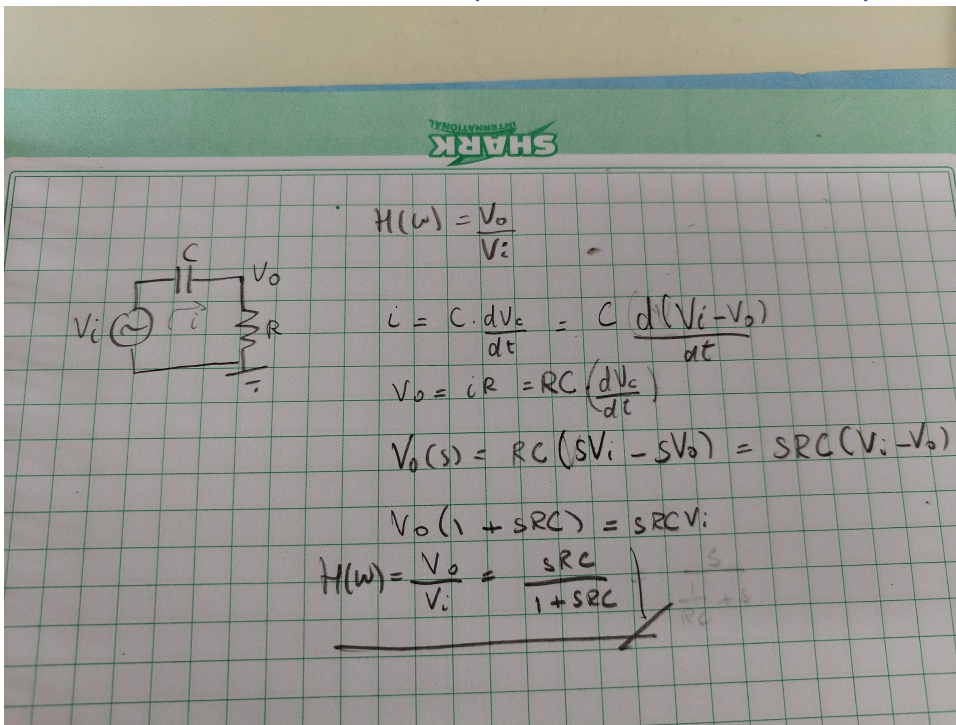 SHARK
INTERNATIONAL
H(ω) = Vo/Vi
C
Vo
Vi
i
R
i = C · dVc/dt = C d(Vi-Vo)/dt
Vo = iR = RC (dVc/dt)
Vo(s) = RC (sVi - sVo) = SRC (Vi - Vo)
Vo (1 + SRC) = SRCVi
H(ω) = Vo/Vi = SRC/(1 + SRC)
S/(1/RC + S)